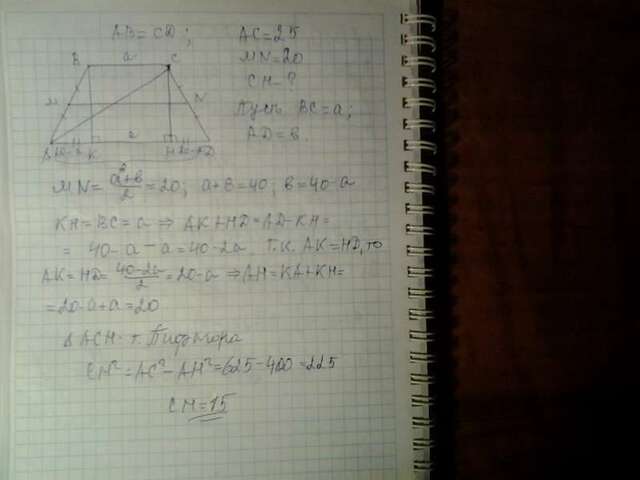 AB = CD;
AC = 25
MN = 20
CH - ?
Пусть BC = a;
AD = в.
B a C
M N
A 20-a K a H 20-a D
MN = a+в/2 = 20; a+в = 40; в = 40-a
KH = BC = a ⇒ AK+HD = AD-KH =
= 40-a-a = 40-2a. Т.К. AK = HD, то
AK = HD = 40-2a/2 = 20-a ⇒ AH = KA+KH =
= 20-a+a = 20
Δ ACH - т. Пифагора
CH² = AC² - AH² = 625 - 400 = 225
CH = 15